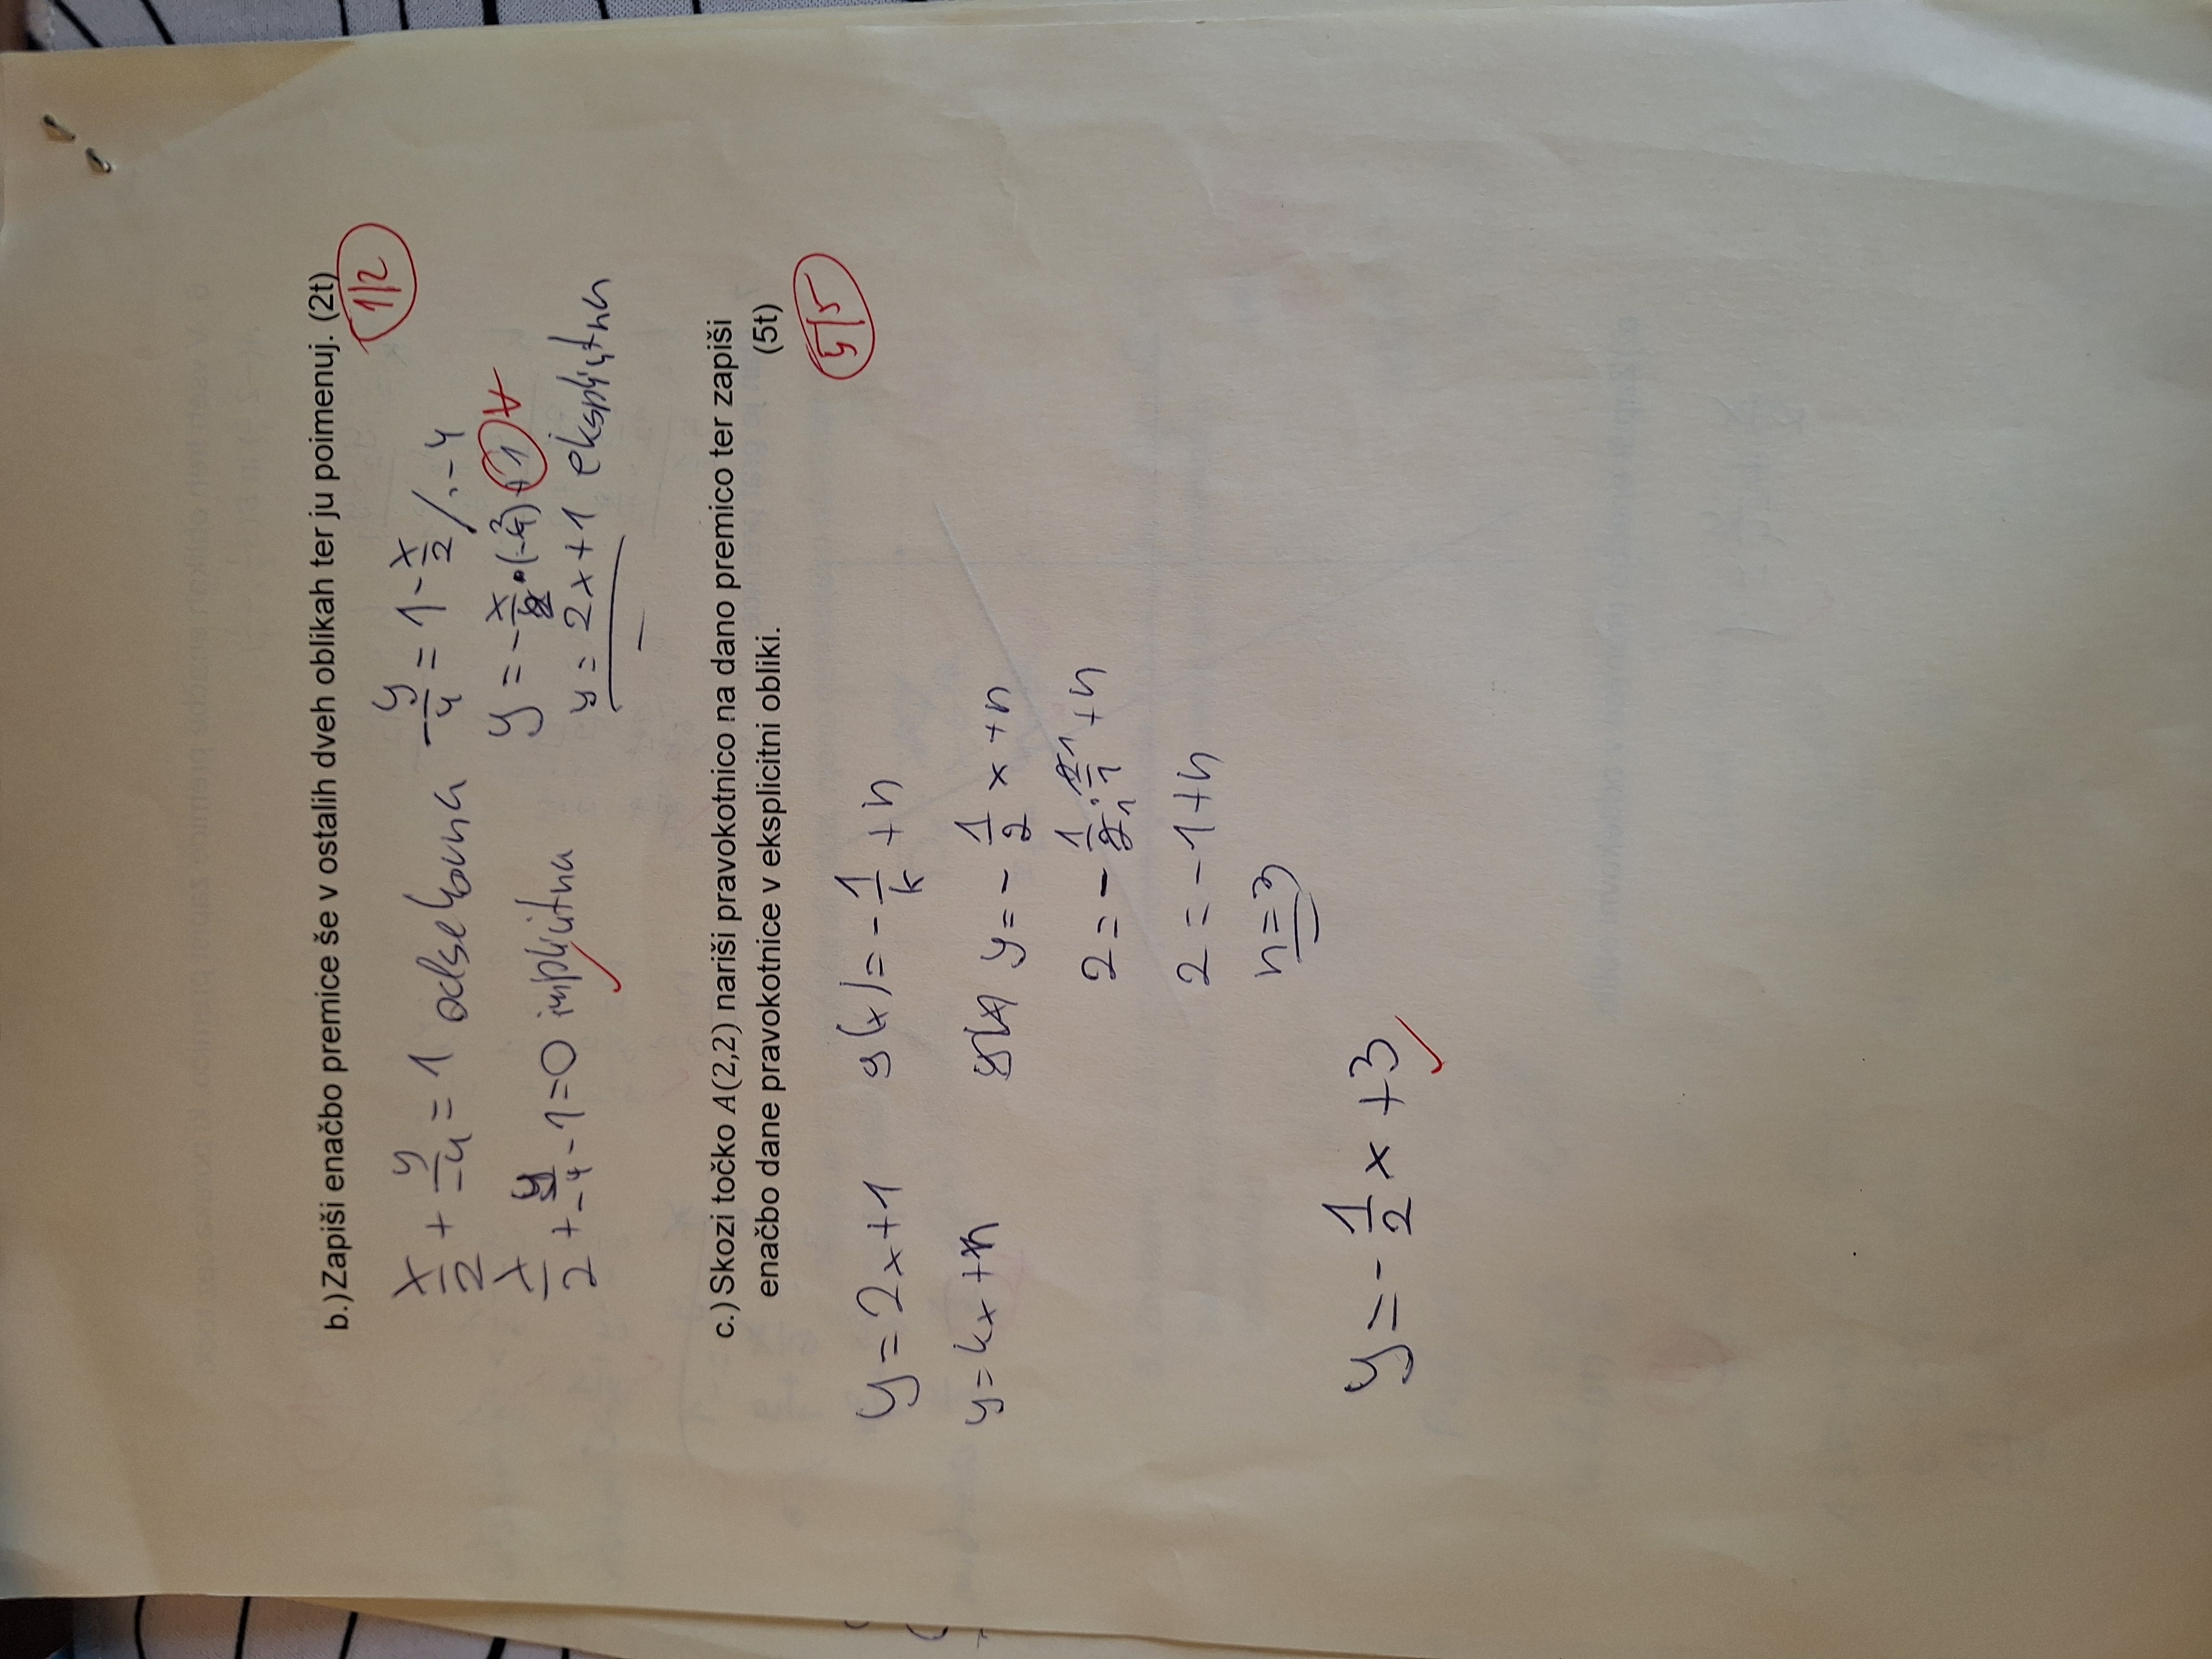 b.) Zapiši enačbo premice še v ostalih dveh oblikah ter ju poimenuj. (2t)
1/2
x/2 + y/-4 = 1 odsekovna
x/2 + y/-4 - 1 = 0 implicitna
-y/4 = 1 - x/2 /·-4
y = -x/2 · (-4) + 1
y = 2x + 1 eksplicitna
c.) Skozi točko A(2,2) nariši pravokotnico na dano premico ter zapiši
enačbo dane pravokotnice v eksplicitni obliki. (5t)
5/5
y = 2x + 1
y = kx + n
g(x) = -1/k + n
y = -1/2 x + n
2 = -1/2 · 2/1 + n
2 = -1 + n
n = 3
y = -1/2 x + 3